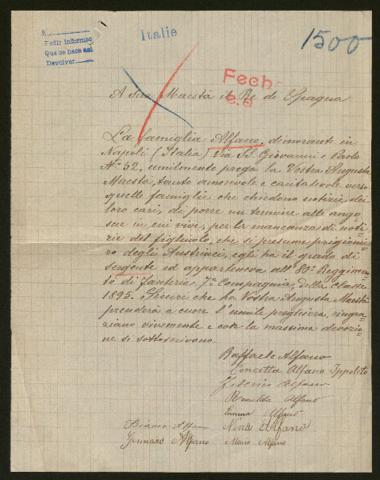 A
Pedir informes
Que se hace así
Devolver
Italie
1500
Fech
e.s
A Sua Maestà il Re di Spagna
La famiglia Alfano, dimorante in
Napoli (Italia) Via SS. Giovanni e Paolo
N.° 52, umilmente prega la Vostra Augusta
Maestà, tanto amorevole e caritatevole verso
quelle famiglie che chiedono notizie dei
loro cari, di porre un termine alle ango
sce in cui vive, per la mancanza di noti
zie del figliuolo, che si presume prigionie
ro degli Austriaci; egli ha il grado di
sergente ed apparteneva all'80° Reggimen
to di fanteria, 7a Compagnia, della classe
1895. Sicuri che la Vostra Augusta Maestà
prenderà a cuore l'umile preghiera, ringra
ziano vivamente e con la massima devozio
ne si sottoscrivono.
Raffaele Alfano
Concetta Alfano Ippolito
Alfano
Alfano
Emma Alfano
Bianca Alfano Nina Alfano
Gennaro Alfano Mario Alfano